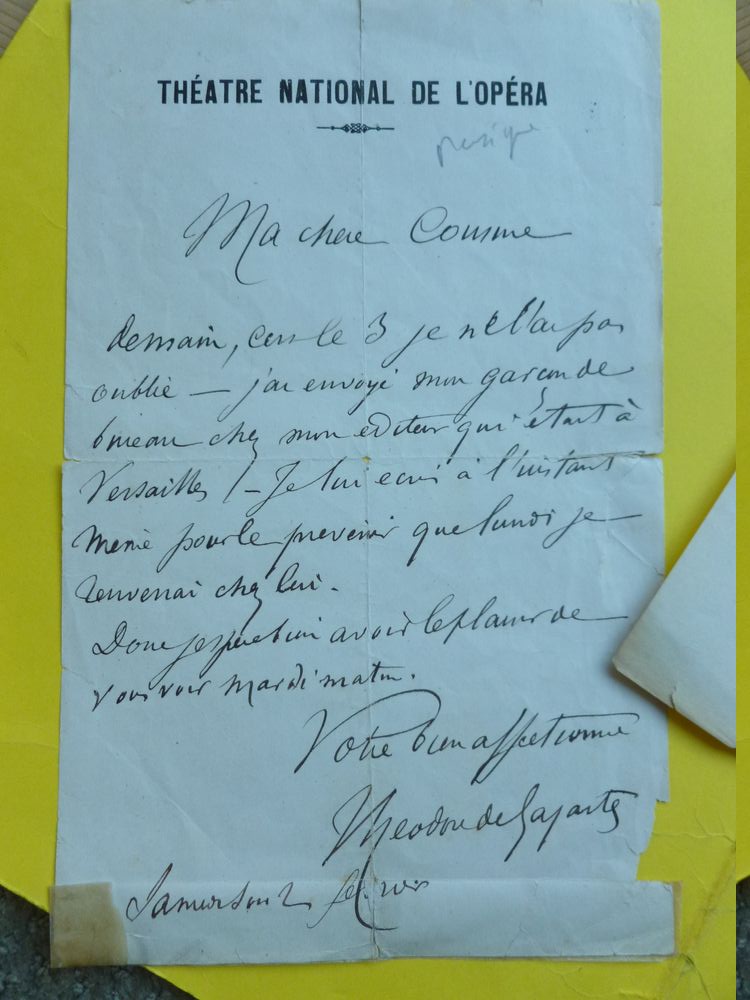 THÉATRE NATIONAL DE L'OPÉRA
musique
Ma chere Cousine
demain, c'est le 3 je ne l'ai pas
oublié — j'ai envoyé mon garçon de
bureau chez mon editeur qui était à
Versailles ! — Je lui ecris à l'instant
meme pour le prevenir que lundi je
renverrai chez lui.
Donc j'espere bien avoir le plaisir de
vous voir mardi matin.
Votre bien affectionné
Theodore de Lajarte
Samedi soir 2 fevrier